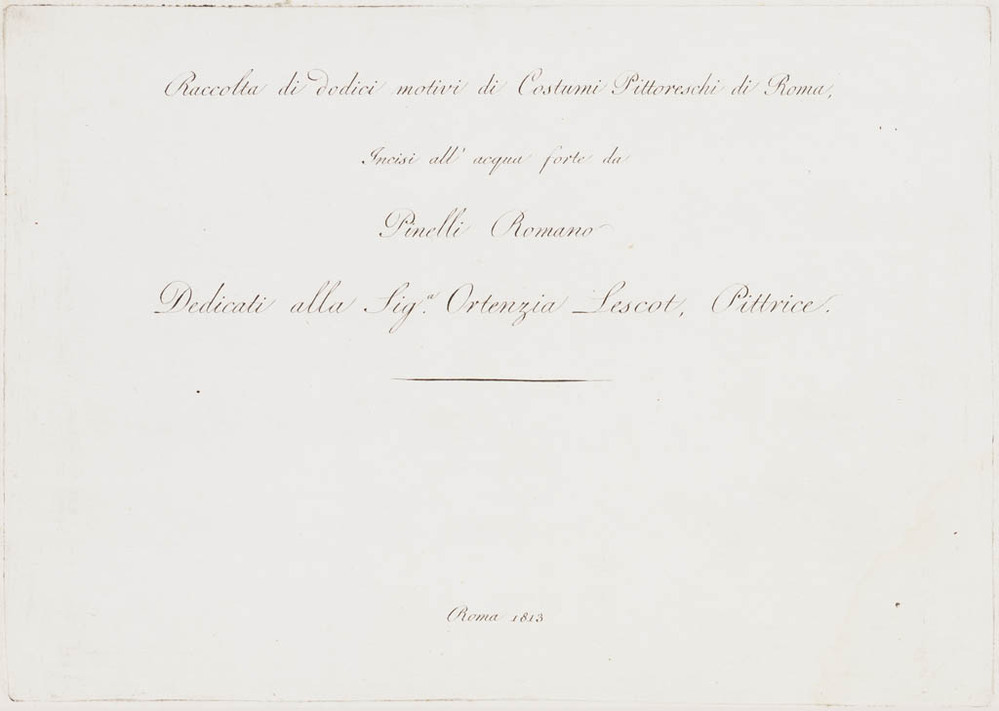 Raccolta di dodici motivi di Costumi Pittoreschi di Roma,
Incisi all' acqua forte da
Pinelli Romano
Dedicati alla Sig.ª Ortenzia Lescot, Pittrice.
Roma 1813